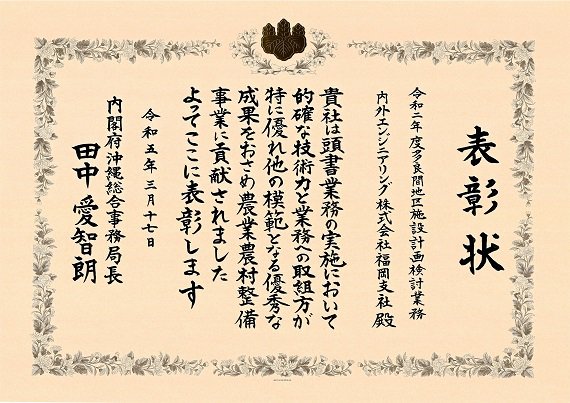 表彰状
令和二年度多良間地区施設計画検討業務
内外エンジニアリング株式会社福岡支社 殿
貴社は頭書業務の実施において
的確な技術力と業務への取組方が
特に優れ他の模範となる優秀な
成果をおさめ農業農村整備
事業に貢献されました
よってここに表彰します
令和五年三月十七日
内閣府沖縄総合事務局長
田中愛智朗